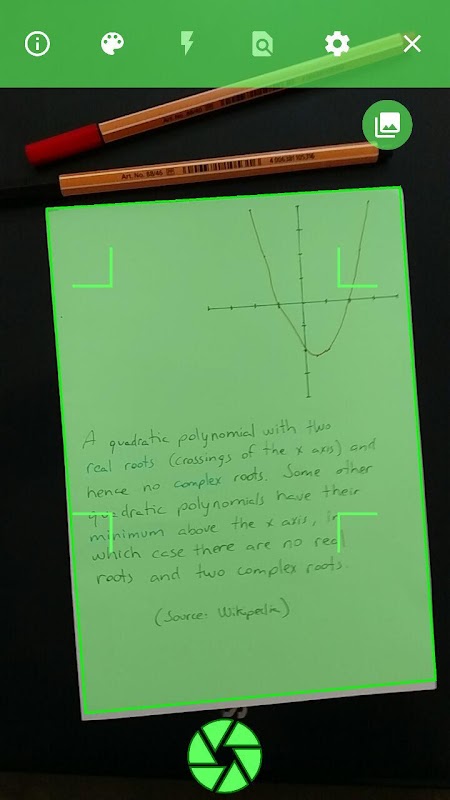 Art. No. 88/45
4 006381 105316
A quadratic polynomial with two
real roots (crossings of the x axis) and
hence no complex roots. Some other
quadratic polynomials have their
minimum above the x axis, in
which case there are no real
roots and two complex roots.
(Source: Wikipedia)